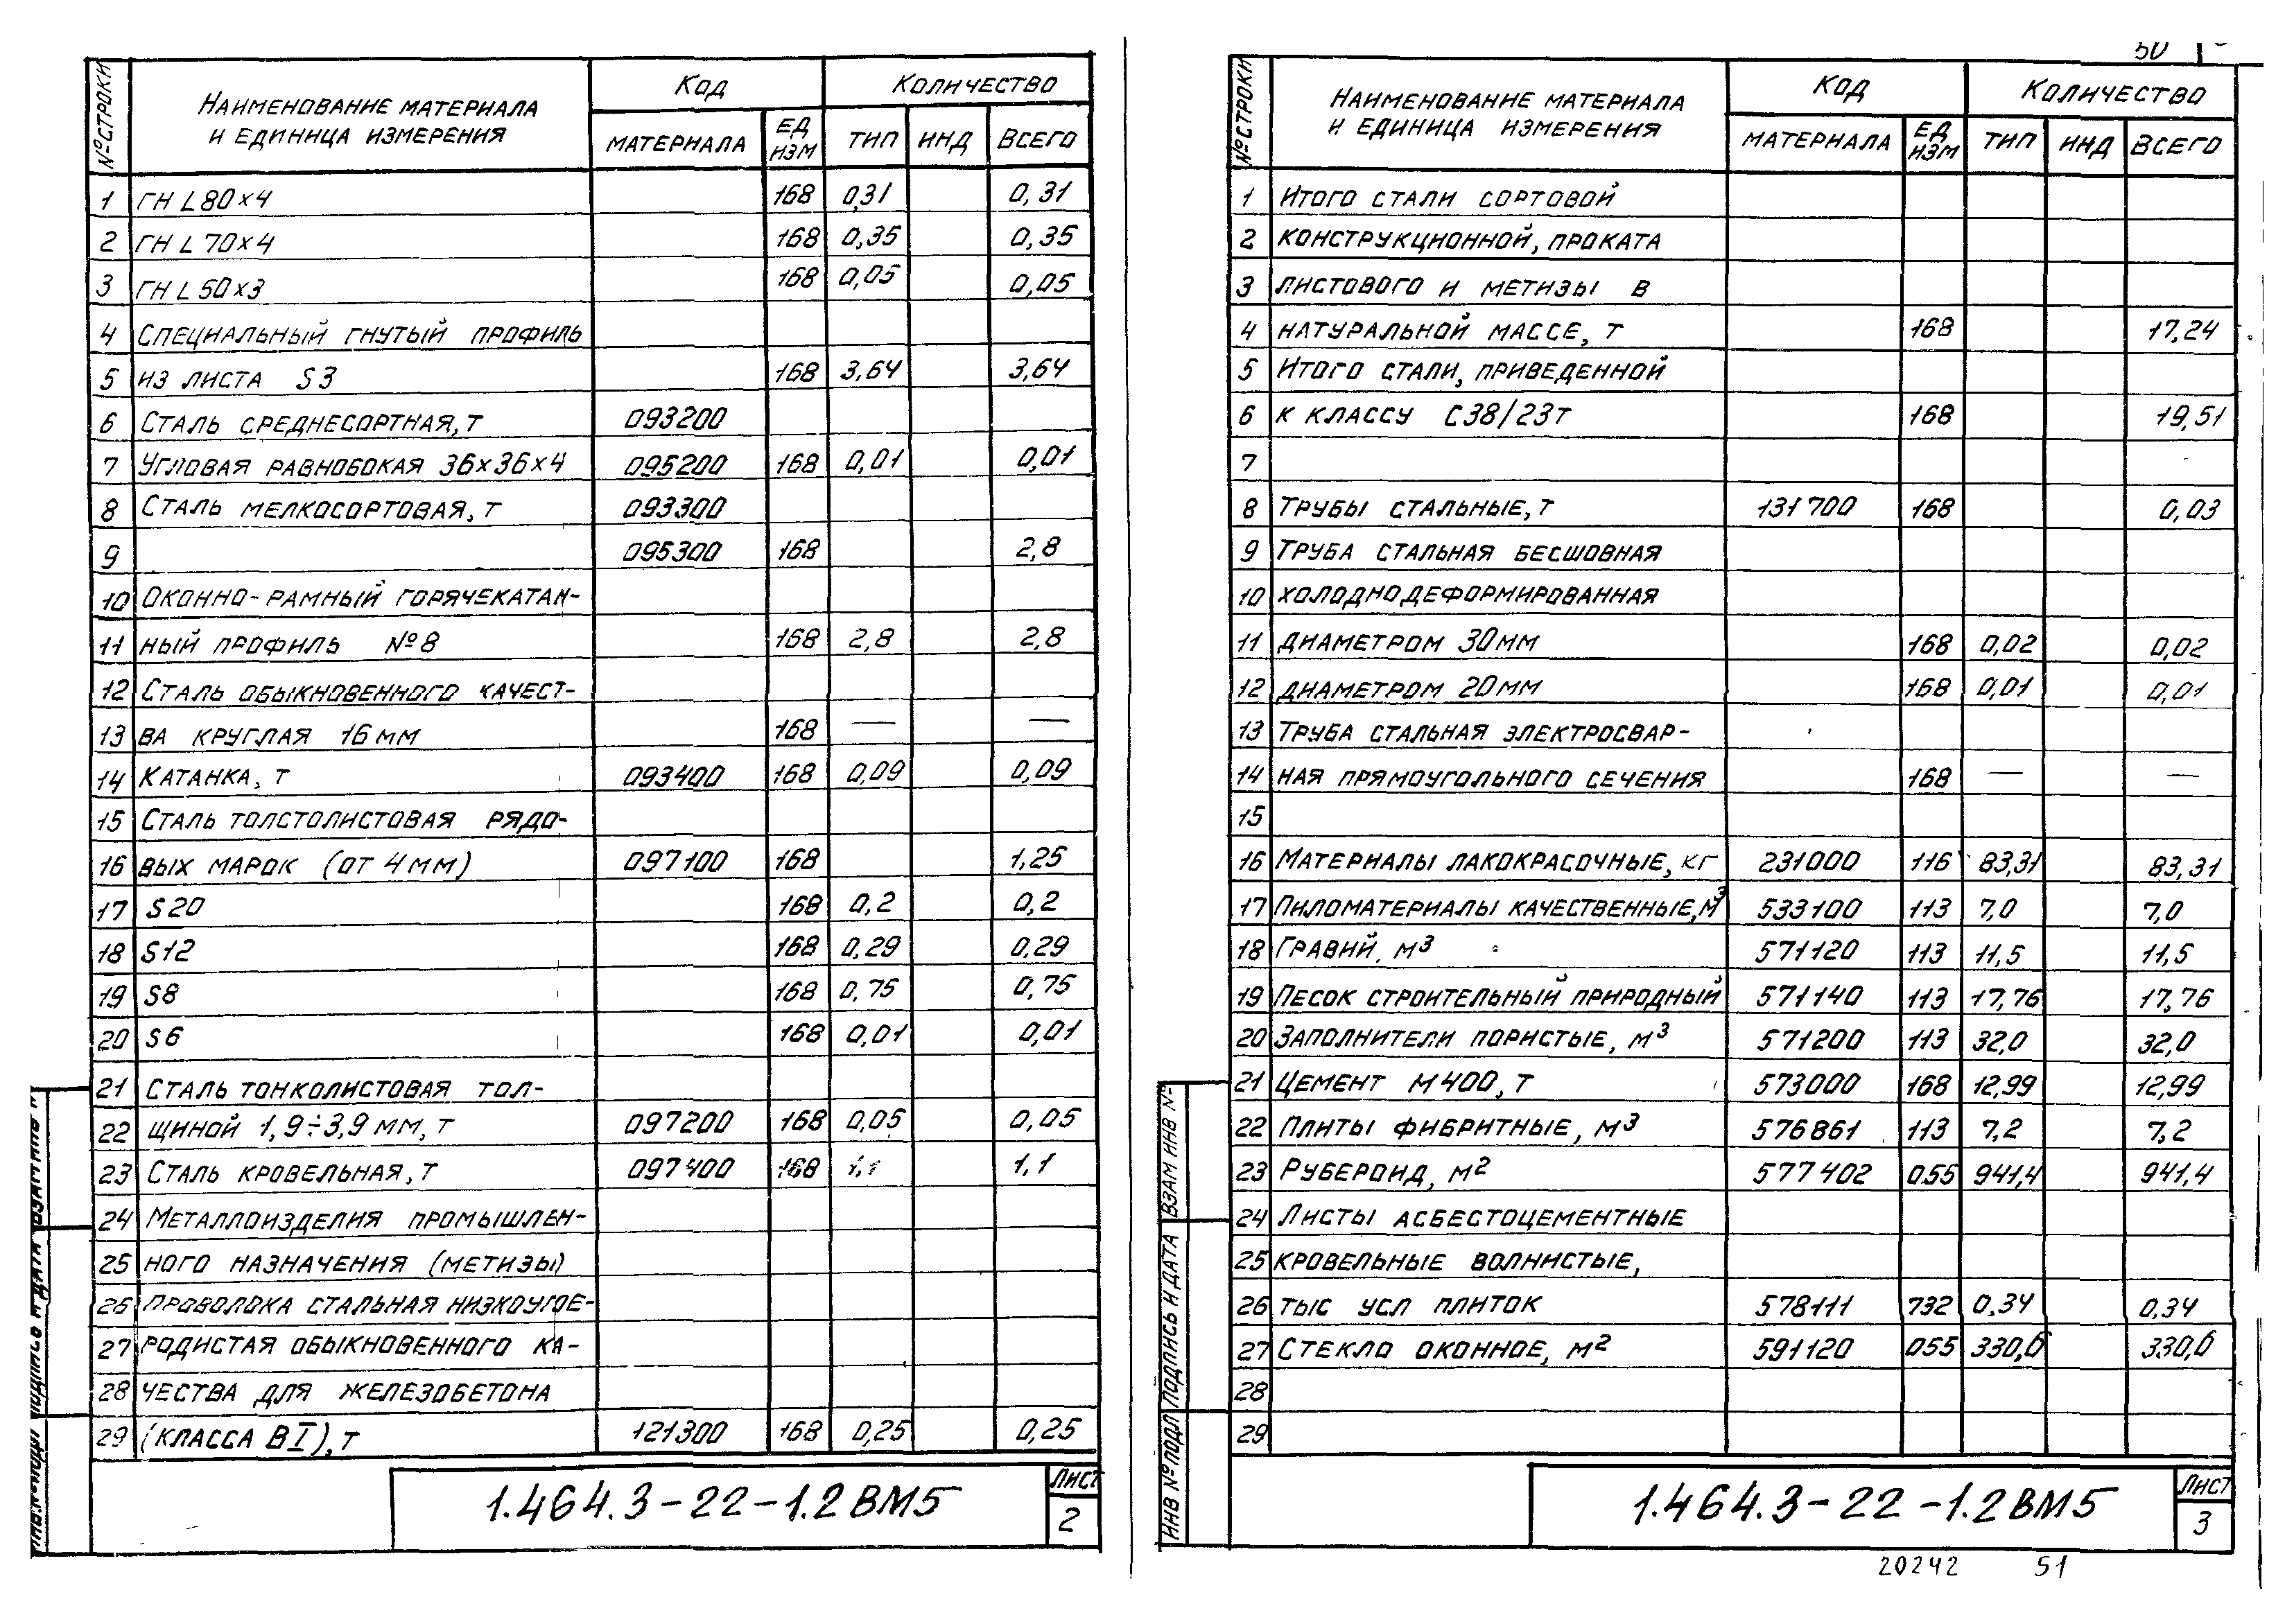 № строки | Наименование материала и единица измерения | Код | Количество
материала | ед изм | тип | инд | всего
1 ГН L 80×4 168 0,31 0,31
2 ГН L 70×4 168 0,35 0,35
3 ГН L 50×3 168 0,05 0,05
4 Специальный гнутый профиль
5 из листа S3 168 3,64 3,64
6 Сталь среднесортная, т 093200
7 Угловая равнобокая 36×36×4 095200 168 0,01 0,01
8 Сталь мелкосортовая, т 093300
9 095300 168 2,8
10 Оконно-рамный горячекатан-
11 ный профиль №8 168 2,8 2,8
12 Сталь обыкновенного качест-
13 ва круглая 16 мм 168 — —
14 Катанка, т 093400 168 0,09 0,09
15 Сталь толстолистовая рядо-
16 вых марок (от 4 мм) 097100 168 1,25
17 S20 168 0,2 0,2
18 S12 168 0,29 0,29
19 S8 168 0,75 0,75
20 S6 168 0,01 0,01
21 Сталь тонколистовая тол-
22 щиной 1,9÷3,9 мм, т 097200 168 0,05 0,05
23 Сталь кровельная, т 097400 168 1,1 1,1
24 Металлоизделия промышлен-
25 ного назначения (метизы)
26 Проволока стальная низкоугле-
27 родистая обыкновенного ка-
28 чества для железобетона
29 (класса ВI), т 121300 168 0,25 0,25
1.464.3-22-1.2ВМ5
Лист
2
50
№ строки | Наименование материала и единица измерения | Код | Количество
материала | ед изм | тип | инд | всего
1 Итого стали сортовой
2 конструкционной, проката
3 листового и метизы в
4 натуральной массе, т 168 17,24
5 Итого стали, приведенной
6 к классу С38/23т 168 19,51
7
8 Трубы стальные, т 131700 168 0,03
9 Труба стальная бесшовная
10 холоднодеформированная
11 диаметром 30мм 168 0,02 0,02
12 диаметром 20мм 168 0,01 0,01
13 Труба стальная электросвар-
14 ная прямоугольного сечения 168 — —
15
16 Материалы лакокрасочные, кг 231000 116 83,31 83,31
17 Пиломатериалы качественные, м³ 533100 113 7,0 7,0
18 Гравий, м³ 571120 113 11,5 11,5
19 Песок строительный природный 571140 113 17,76 17,76
20 Заполнители пористые, м³ 571200 113 32,0 32,0
21 Цемент М400, т 573000 168 12,99 12,99
22 Плиты фибритные, м³ 576861 113 7,2 7,2
23 Рубероид, м² 577402 055 941,4 941,4
24 Листы асбестоцементные
25 кровельные волнистые,
26 тыс усл плиток 578111 732 0,34 0,34
27 Стекло оконное, м² 591120 055 330,6 330,6
28
29
Инв № подл Подпись и дата Взам инв №
1.464.3-22-1.2ВМ5
Лист
3
20242 51